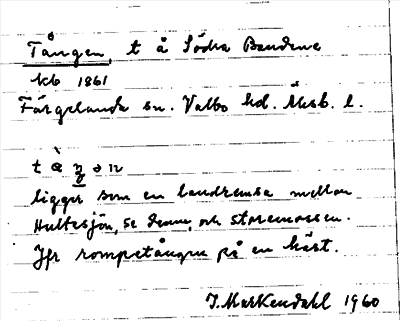 Tången, t å Södra Bandene
kb 1861
Färgelanda sn. Valbo hd. Älvsb. l.
t à ŋ ə n
ligger som en landremsa mellan
Hultesjön, se denna, och Storemossen.
Jfr rompetången på en häst.
J. Markendahl 1960